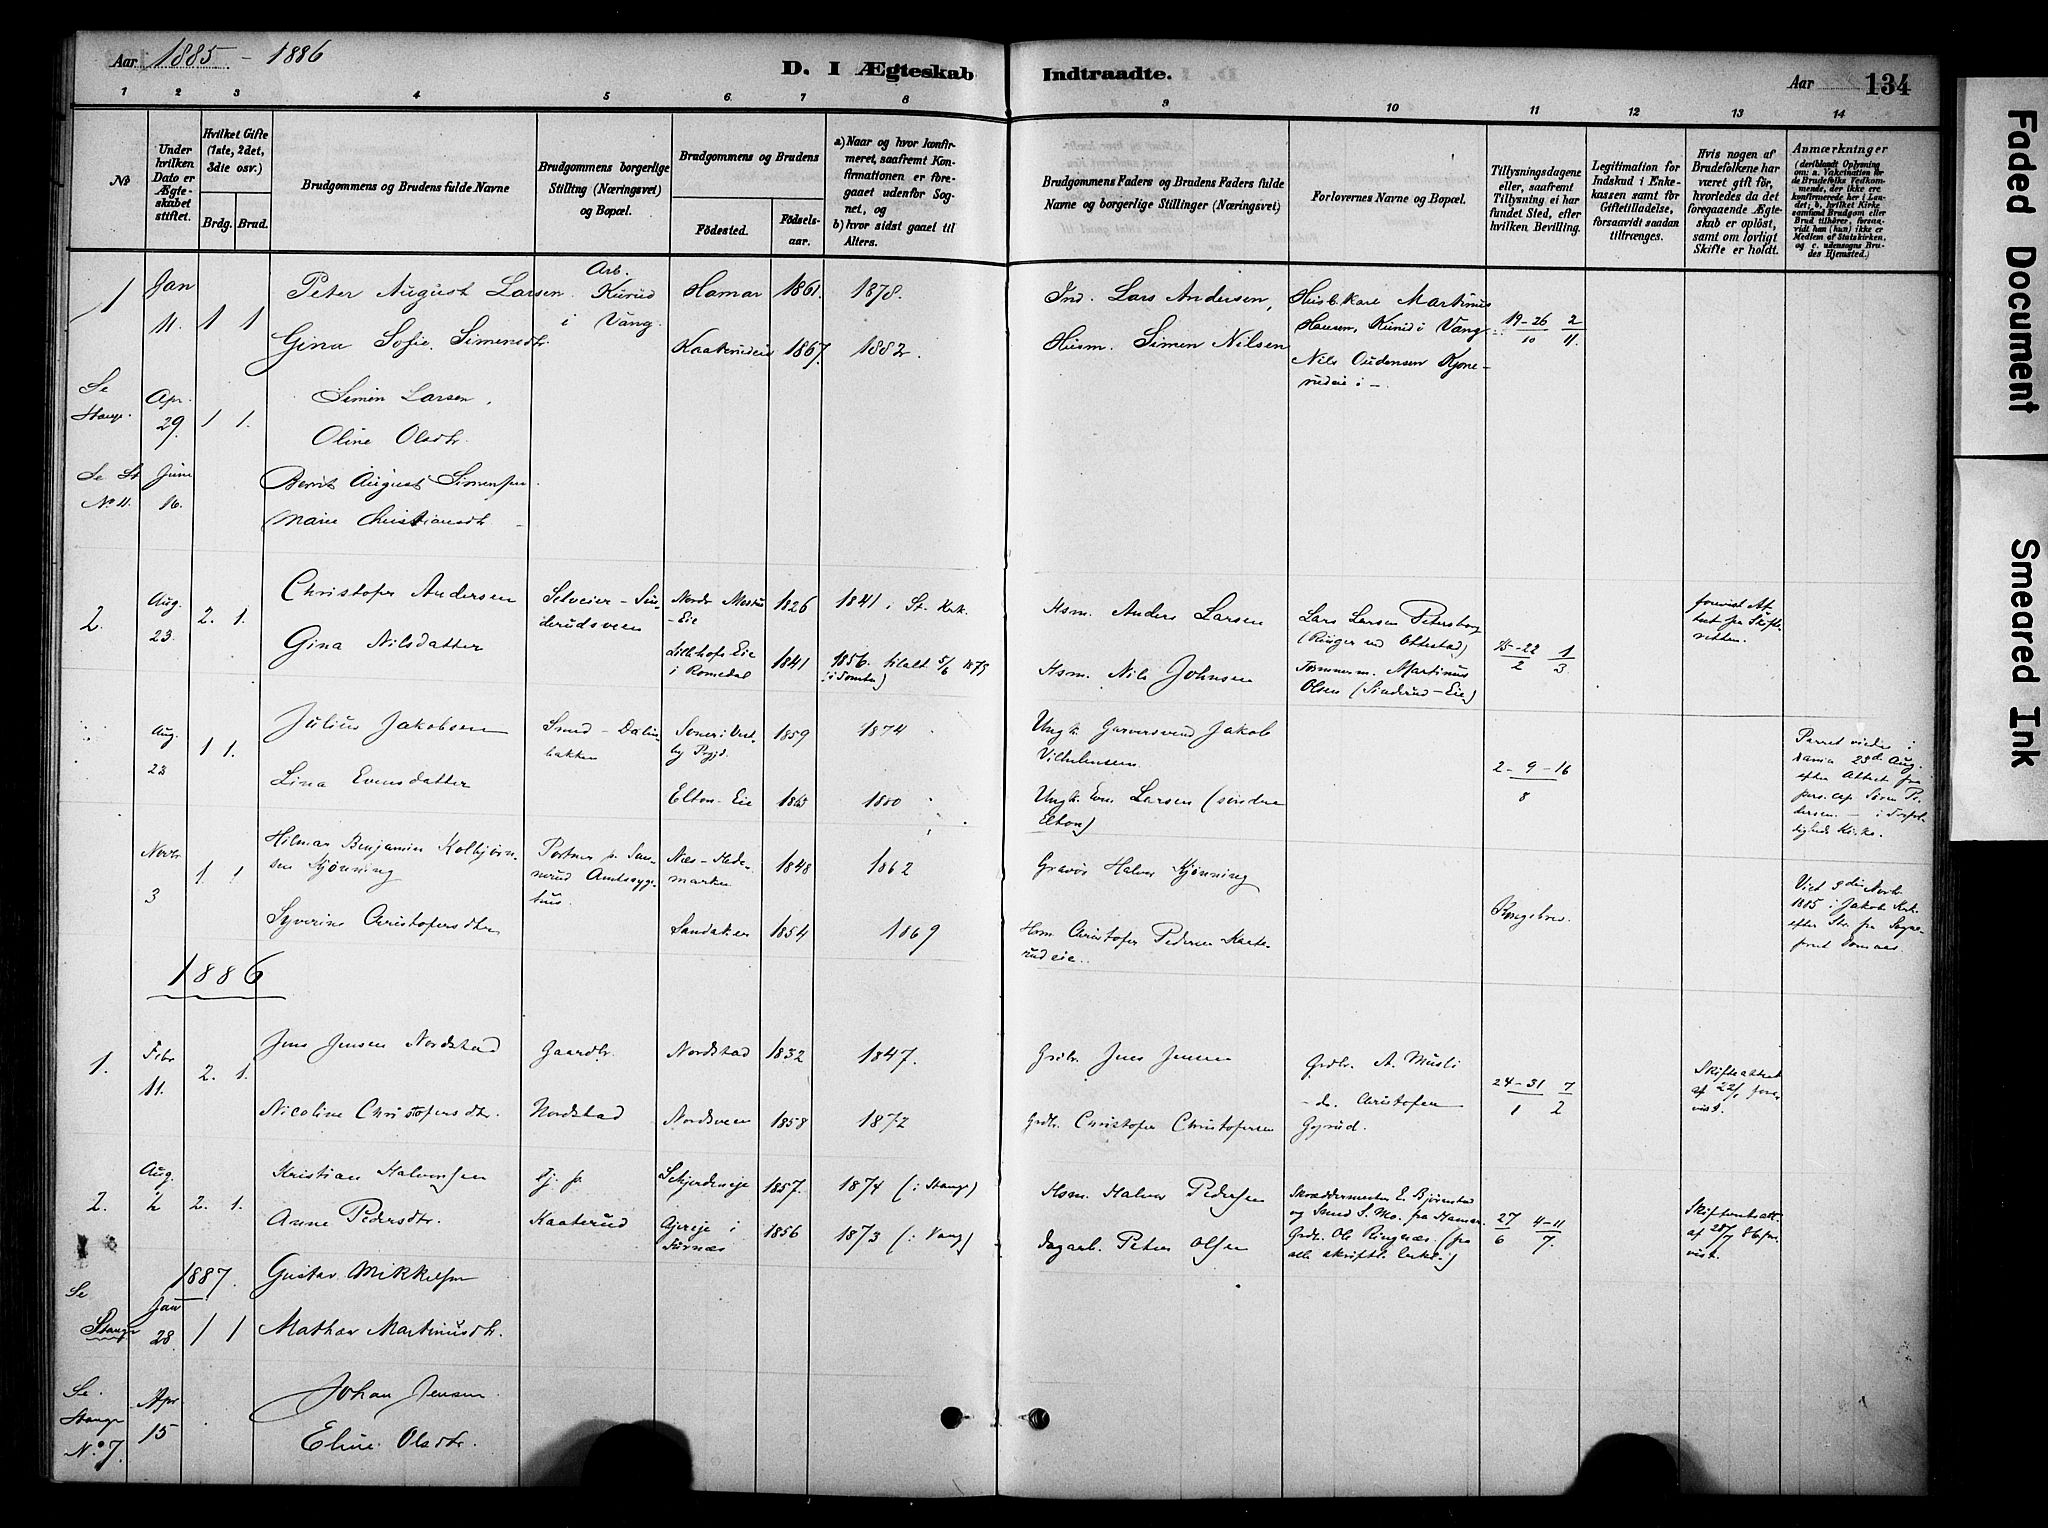 Aar 1885 - 1886
D. I Ægteskab Indtraadte.
Aar 134
1 2 3 4 5 6 7 8 9 10 11 12 13 14
No
Under hvilken Dato er Ægteskabet stiftet.
Hvilket Gifte (1ste, 2det, 3die osv.)
Brdg. Brud.
Brudgommens og Brudens fulde Navne
Brudgommens borgerlige Stilling (Næringsvei) og Bopæl.
Brudgommens og Brudens
Födested.
Födselsaar.
a) Naar og hvor konfirmeret, saafremt Konfirmationen er foregaaet udenfor Sognet, og
b) hvor sidst gaaet til Alters.
Brudgommens Faders og Brudens Faders fulde Navne og borgerlige Stillinger (Næringsvei)
Forlovernes Navne og Bopæl.
Tillysningsdagene eller, saafremt Tillysning ei har fundet Sted, efter hvilken Bevilling.
Legitimation for Indskud i Enkekassen samt for Giftetilladelse, forsaavidt saadan tiltrænges.
Hvis nogen af Brudefolkene har været gift för, hvorledes da det foregaaende Ægteskab er oplöst, samt om lovligt Skifte er holdt.
Anmærkninger
(deriblandt Oplysning om: a. Vaccination för de Brudefolks Vedkommende, der ikke ere konfirmerede her i Landet; b. hvilket Kirkesamfund Brudgom eller Brud tilhörer, forsaavidt han (hun) ikke er Medlem af Statskirken, og c. udensogns Brudes Hjemsted.)
1 Jan 11. 1 1 Peter August Larsen. Arb. Kurud i Vang. Hamar 1861. 1878. Ind. Lars Andersen, Husb. Kare Martinus Hansen, Kurud i Vang 19-26/10 2/11.
Gina Sofie Simensdtr Kaaterudeie 1867. 1882. Husm. Simen Nilsen Nils Audensen
Se Stange. Apr. 29. 1 1. Simen Larsen.
Oline Olsdtr.
Se St No 11. Juni 16. Bernt August Simensen.
Marie Christiansdtr
2. Aug. 23. 2. 1. Christofer Andersen Selveier - Sinderudsveen Nordr -Eie 1826 1841 i St. Kirk. Hsm. Anders Larsen Lars Larsen Petersborg (Ringer ved Ottestad) 15-22/2 1/3 forevist Attest fra Skifteretten.
Gina Nilsdatter Lillehofs Eie i Romedal 1841 1856. (i Tomter) 5/6 1875 Hsm. Nils Johnsen Tømmerm. Martinus Olsen (Sinderud-Eie)
Aug. 23 1 1. Julius Jakobsen Smed - bakken Soner i Vestby Prgjd. 1859 1874 Ungk. Garversvend Jakob Vilhelmsen. 2-9-16/8
Lina Evensdatter Elton-Eie 1865 1880 Ungk. Even Larsen (søndre Elton)
Parret viedes i 23de Aug. efter Attest fra pers. cap. Søren Pedersen. - i Trefoldigheds Kirke.
Novbr. 3 1. 1 Hilmar Benjamin Kolbjørnsen Kjønning Portner p. Sanderud Amtssygehus. Næs - Hedemarken 1848 1862 Gravør Halvor Kjønning Kongebrev. Viet 3die Novb. 1885 i Jakobs Kirk.
Syverine Christofersdtr Sandaker 1854 1869 Hsm Christofer Pedersen Kaaterudeie.
1886
1. Febr 11. 2. 1. Jens Jensen Nordstad Gaardbr. Nordstad 1832 1847. Grdbr. Jens Jensen Grdbr. A. Musli 24-31/1 7/2 Skifteattest af 22/1 forevist.
Nicoline Christofersdtr. Nordstad Nordsveen 1858 1872 Grdbr. Christofer Christofersen - do. Christofer Gyrud.
2. Aug. 2 2. 1. Kristian Halvorsen Tj. p. Skjerdeneje 1857. 1874 (i Stange) Hsm. Halvor Pedersen Skræddermester E. Bjørnstad og Smed S. Mo. fra Hamar. 27/6 4-11/7.
Anne Pedersdtr. Kaaterud Gjereje i Furnæs 1856 1873 (i Vang) Dagarb. Peter Olsen Grdbr. Ole Ringnæs. (fra alle skriftl. Erkl.)
1887.
Se Stange Jan 28. 1 1 Gustav Mikkelsen
Mathea Martinusdtr.
Se Stange No. 7 Apr 15 Johan Jensen
Eline Olsdtr.
Faded Document
Smeared Ink